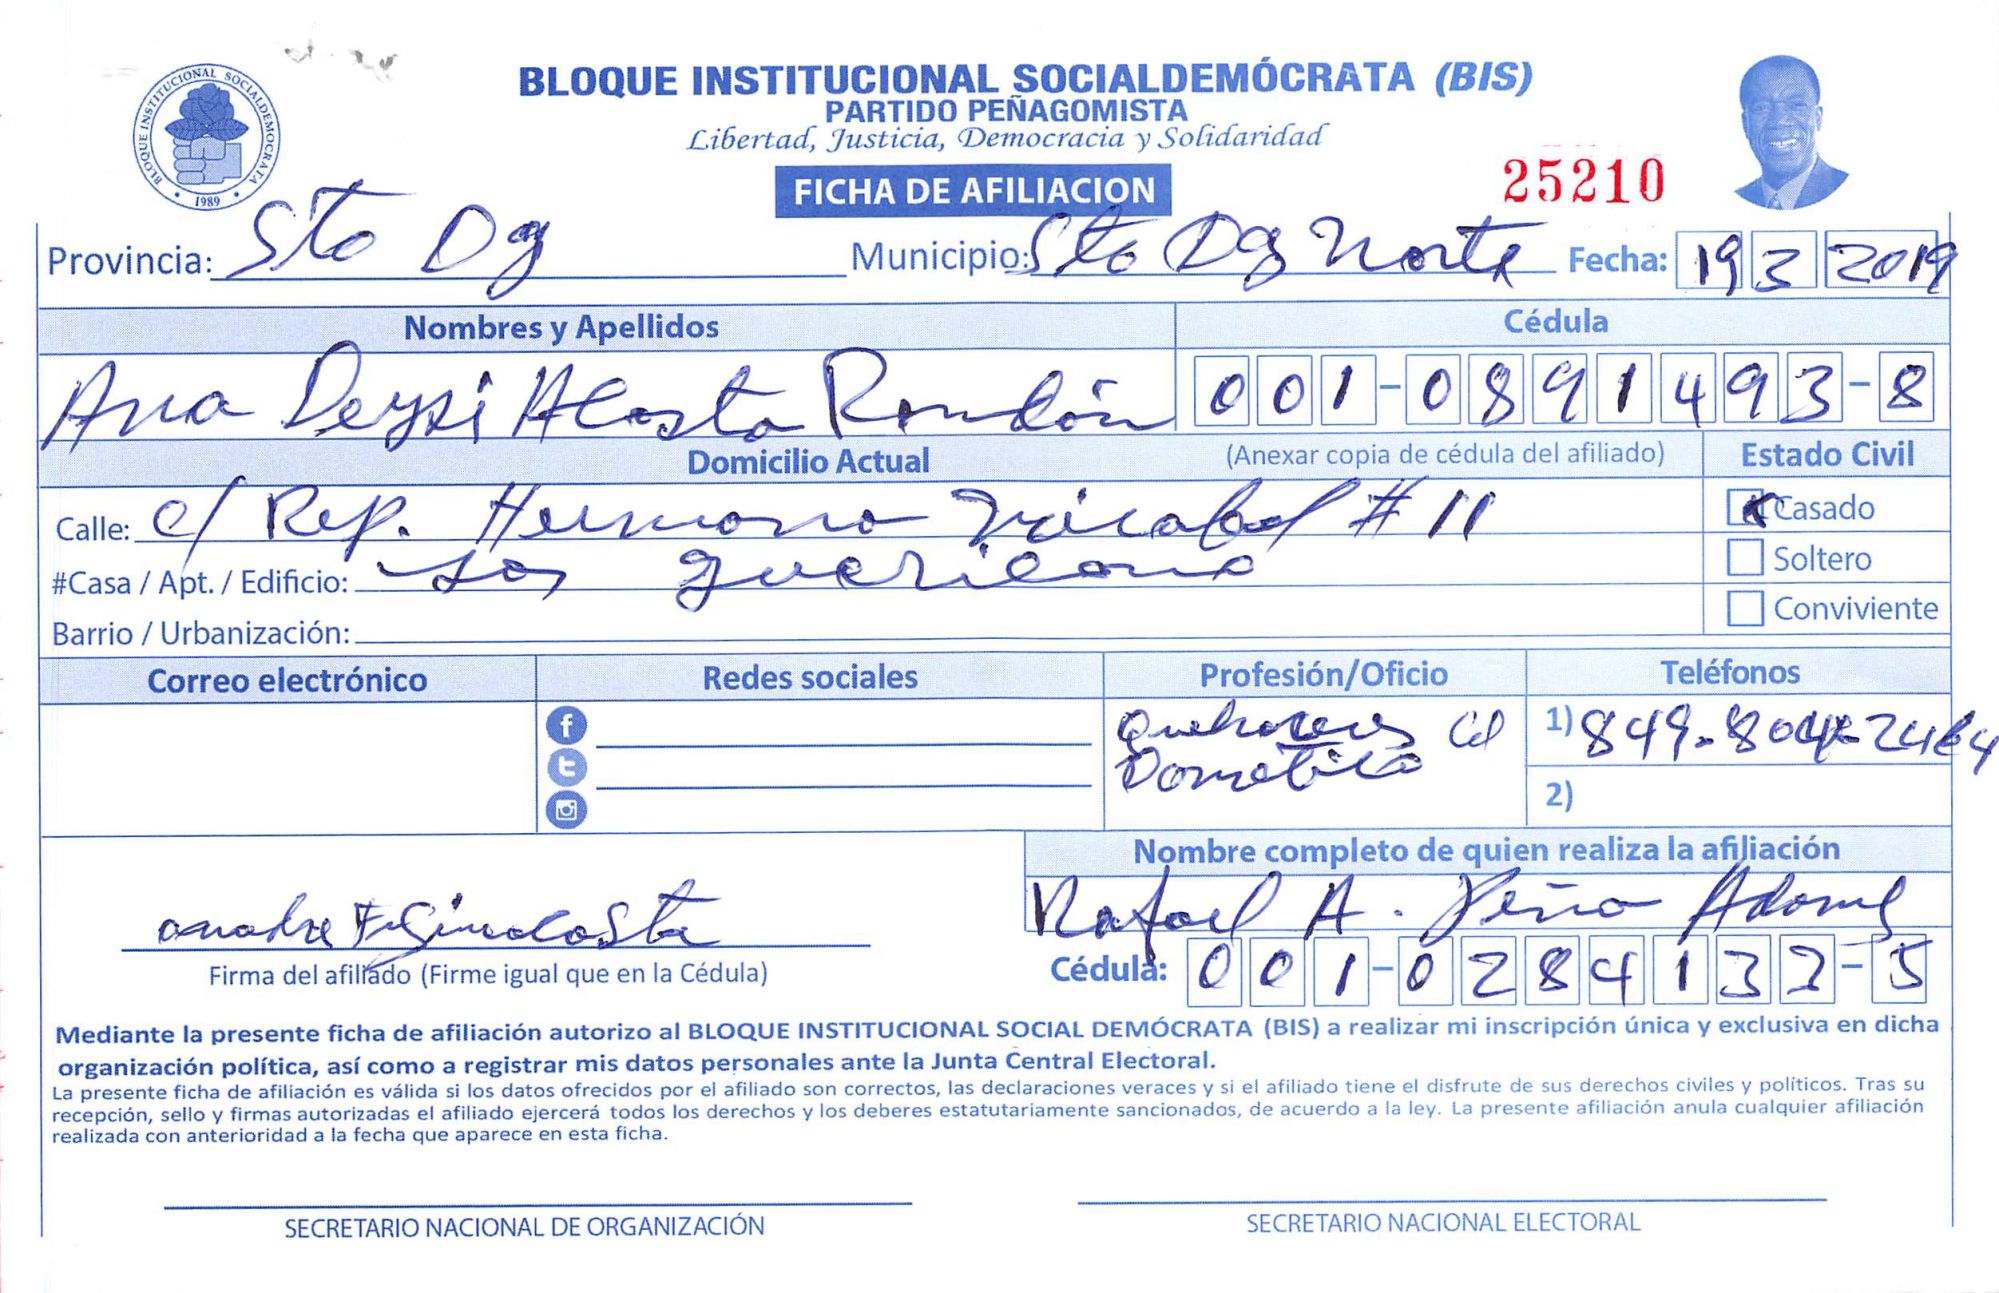 BLOQUE INSTITUCIONAL SOCIALDEMÓCRATA (BIS)
PARTIDO PEÑAGOMISTA
Libertad, Justicia, Democracia y Solidaridad
BLOQUE INSTITUCIONAL SOCIALDEMOCRATA
• 1989 •
FICHA DE AFILIACION
25210
Provincia: Sto Dg Municipio: Sto Dg Norte Fecha: 19 3 2019
Nombres y Apellidos Cédula
Ana Deysi Acosta Rondón 001-0891493-8
Domicilio Actual (Anexar copia de cédula del afiliado) Estado Civil
Calle: c/ Rep. Hermana Mirabal # 11 Casado
#Casa / Apt. / Edificio: Los Soltero
Barrio / Urbanización: Conviviente
Correo electrónico Redes sociales Profesión/Oficio Teléfonos
Quehaceres
Domestico
1) 849-804-2464
2)
Nombre completo de quien realiza la afiliación
Rafael A. Peña Adames
Firma del afiliado (Firme igual que en la Cédula) Cédula: 001-0284132-5
Mediante la presente ficha de afiliación autorizo al BLOQUE INSTITUCIONAL SOCIAL DEMÓCRATA (BIS) a realizar mi inscripción única y exclusiva en dicha
organización política, así como a registrar mis datos personales ante la Junta Central Electoral.
La presente ficha de afiliación es válida si los datos ofrecidos por el afiliado son correctos, las declaraciones veraces y si el afiliado tiene el disfrute de sus derechos civiles y políticos. Tras su
recepción, sello y firmas autorizadas el afiliado ejercerá todos los derechos y los deberes estatutariamente sancionados, de acuerdo a la ley. La presente afiliación anula cualquier afiliación
realizada con anterioridad a la fecha que aparece en esta ficha.
SECRETARIO NACIONAL DE ORGANIZACIÓN SECRETARIO NACIONAL ELECTORAL